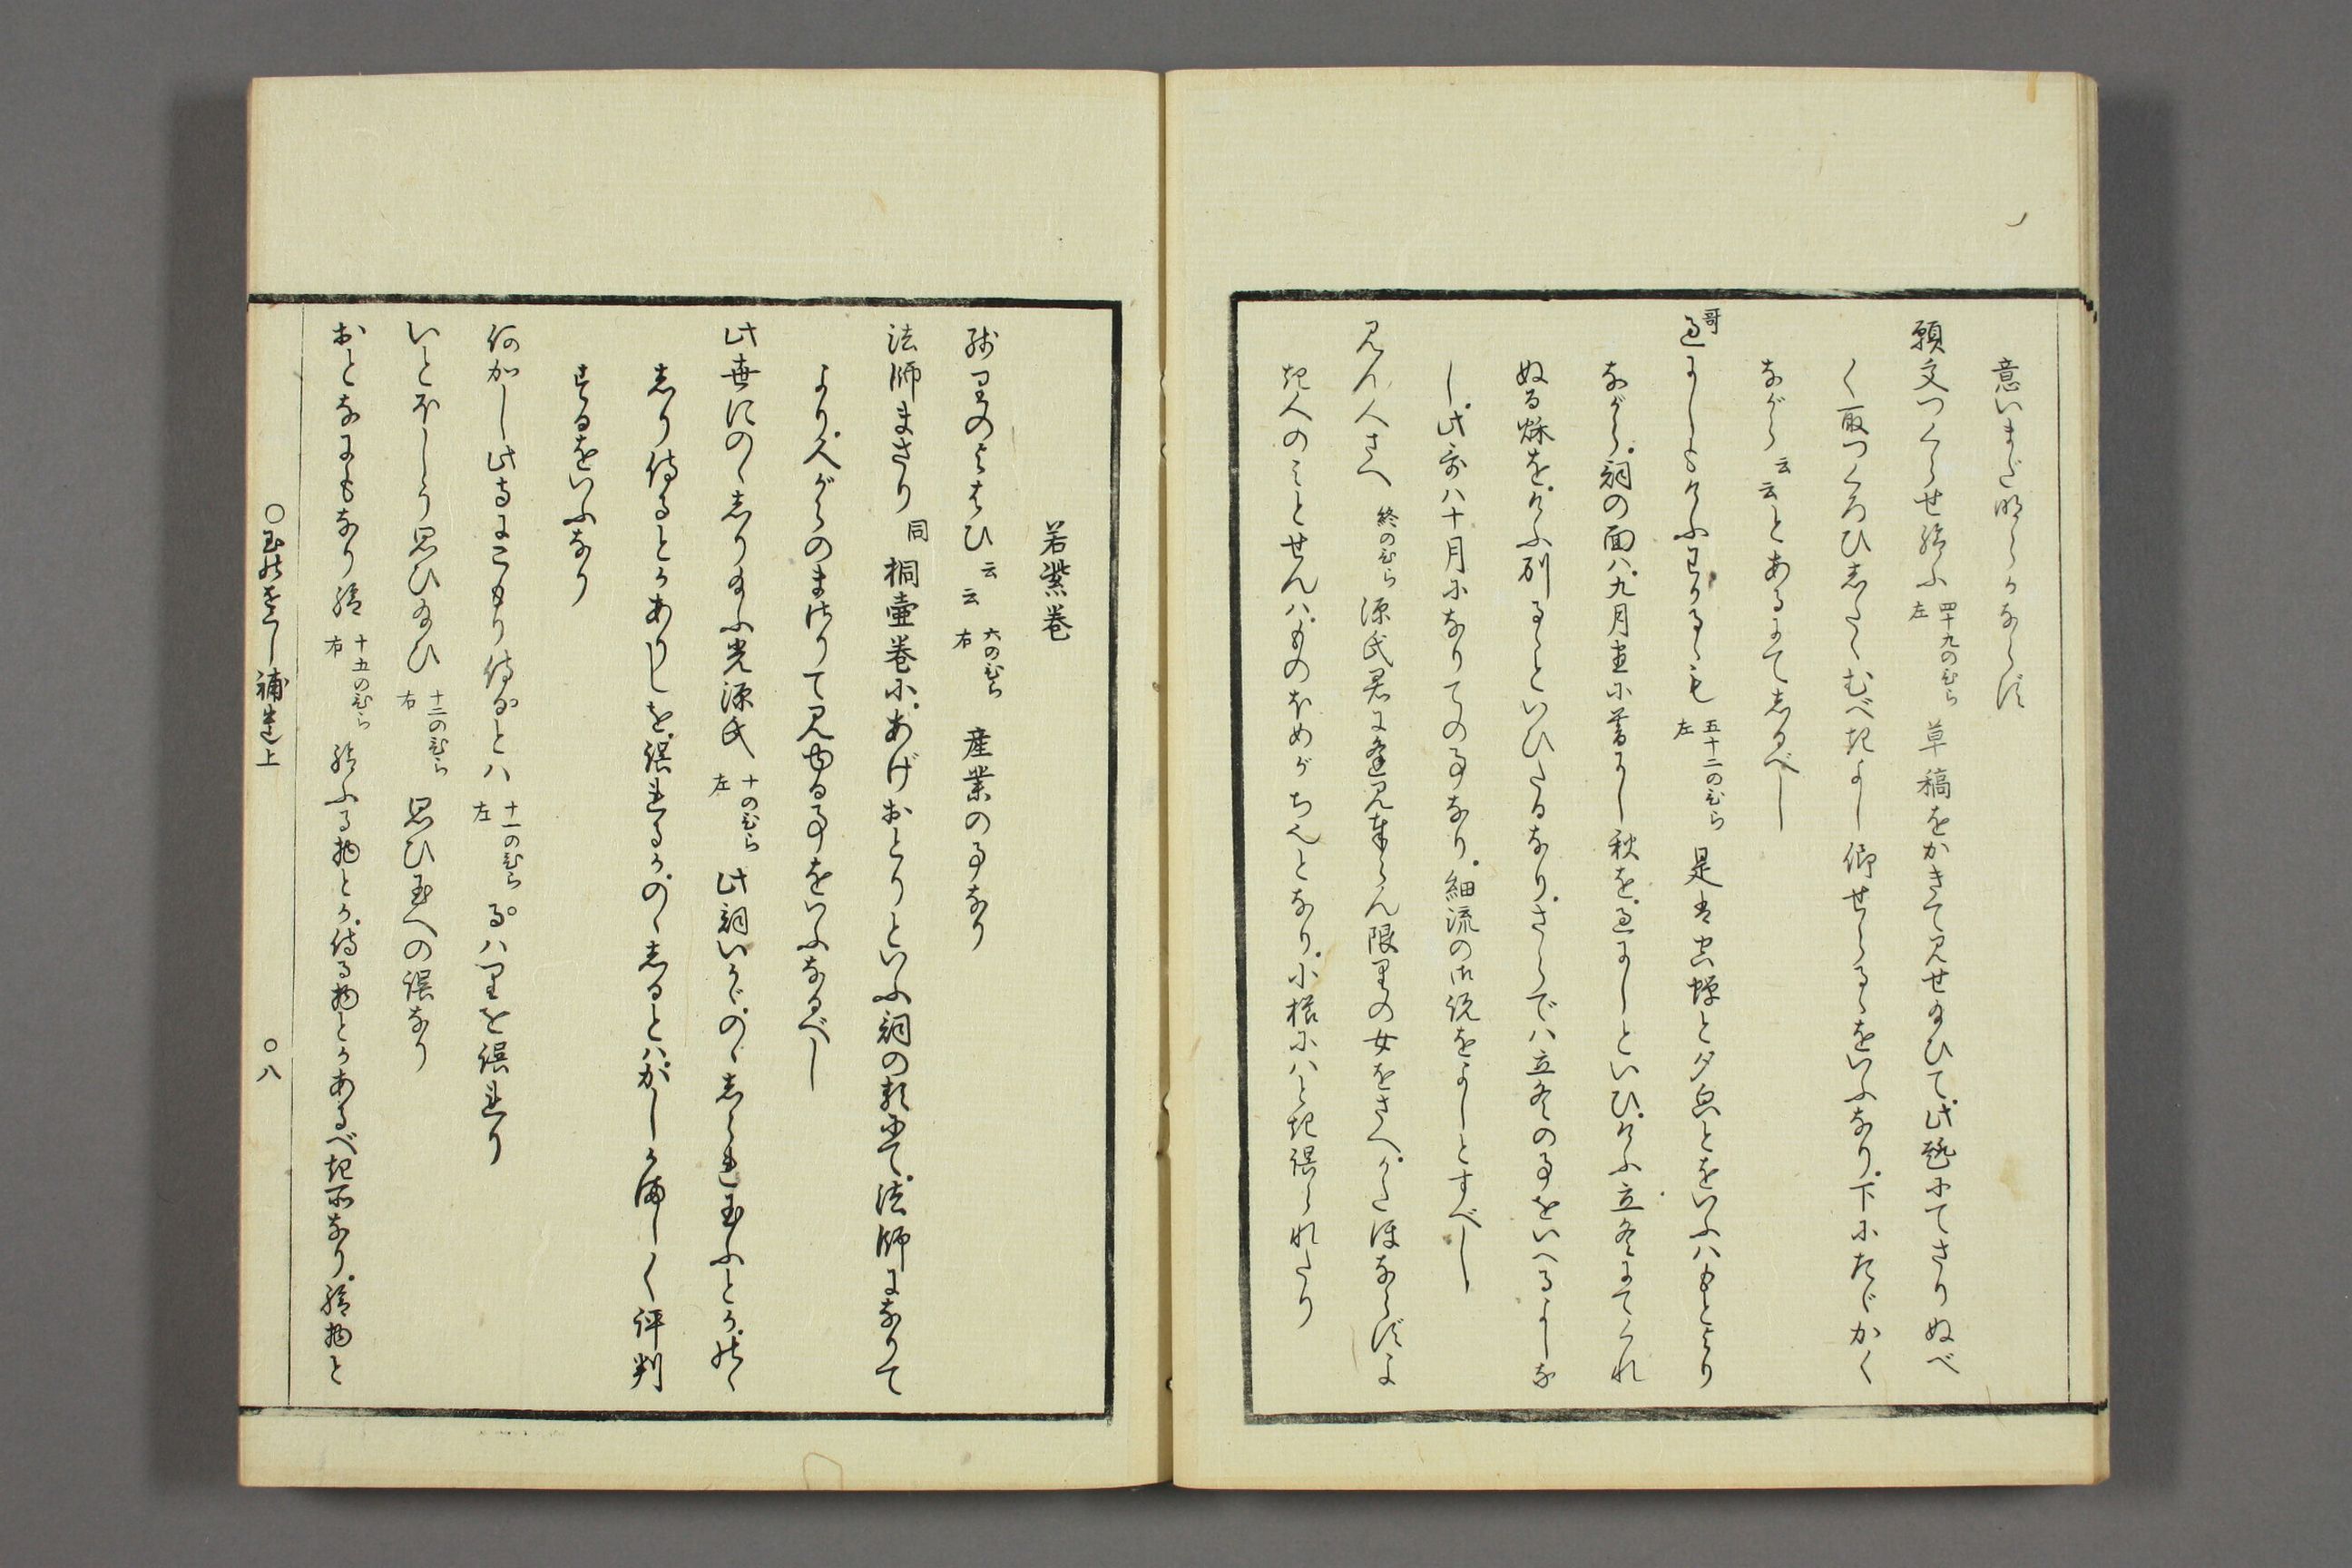 意いまだ明らかならず
願文つくらせ給ふ 四十九のひら左 草稿をかきて見せ給ひて、此趣にてさりぬべ
く取つくろひしたゝむべきよし仰せらるゝをいふなり、下にたゞかく
ながら云云とあるにてしるべし
哥 過にしもけふわかるゝも 五十二のひら左 是は空蝉と夕皃とをいふハもとより
ながら、詞の面ハ、九月盡に暮にし秋を、過にしといひ、けふ立冬にてくれ
ぬる秌を、けふ別るゝといひたるなり、さらでハ立冬の事をいへるよしな
し、此哥ハ十月になりての事なり、細流の御説をよしとすべし
見ん人さへ 終のひら 源氏君に逢見奉らん限りの女をさへ、かたほならずよ
き人のみとせんハ、ものほめがちへとなり、小櫛にハとき誤られたり
若紫巻
残りのよはひ云云 六のひら右 産業の事なり
法師まさり 同 桐壷巻に、あげおとりといふ詞の類にて、法師になりて
より、人がらのまさりて見ゆる事をいふなるべし
此世にのゝしり給ふ光源氏 十のひら左 此詞いかゞ、のゝしられ玉ふとか、のゝ
しり侍るとかありしを、誤れるか、のゝしるとハ、かしかましく評判
するをいふなり
何がし此寺にこもり侍るとハ 十一のひら左 るハりを誤れり
いとほしう思ひ給ひ 十二のひら右 思ひ玉への誤なり
おとなにもなり給 十五のひら右 給ふる物とか、侍る物とかあるべき所なり、給物と
○玉のをくし補遺上 ○八